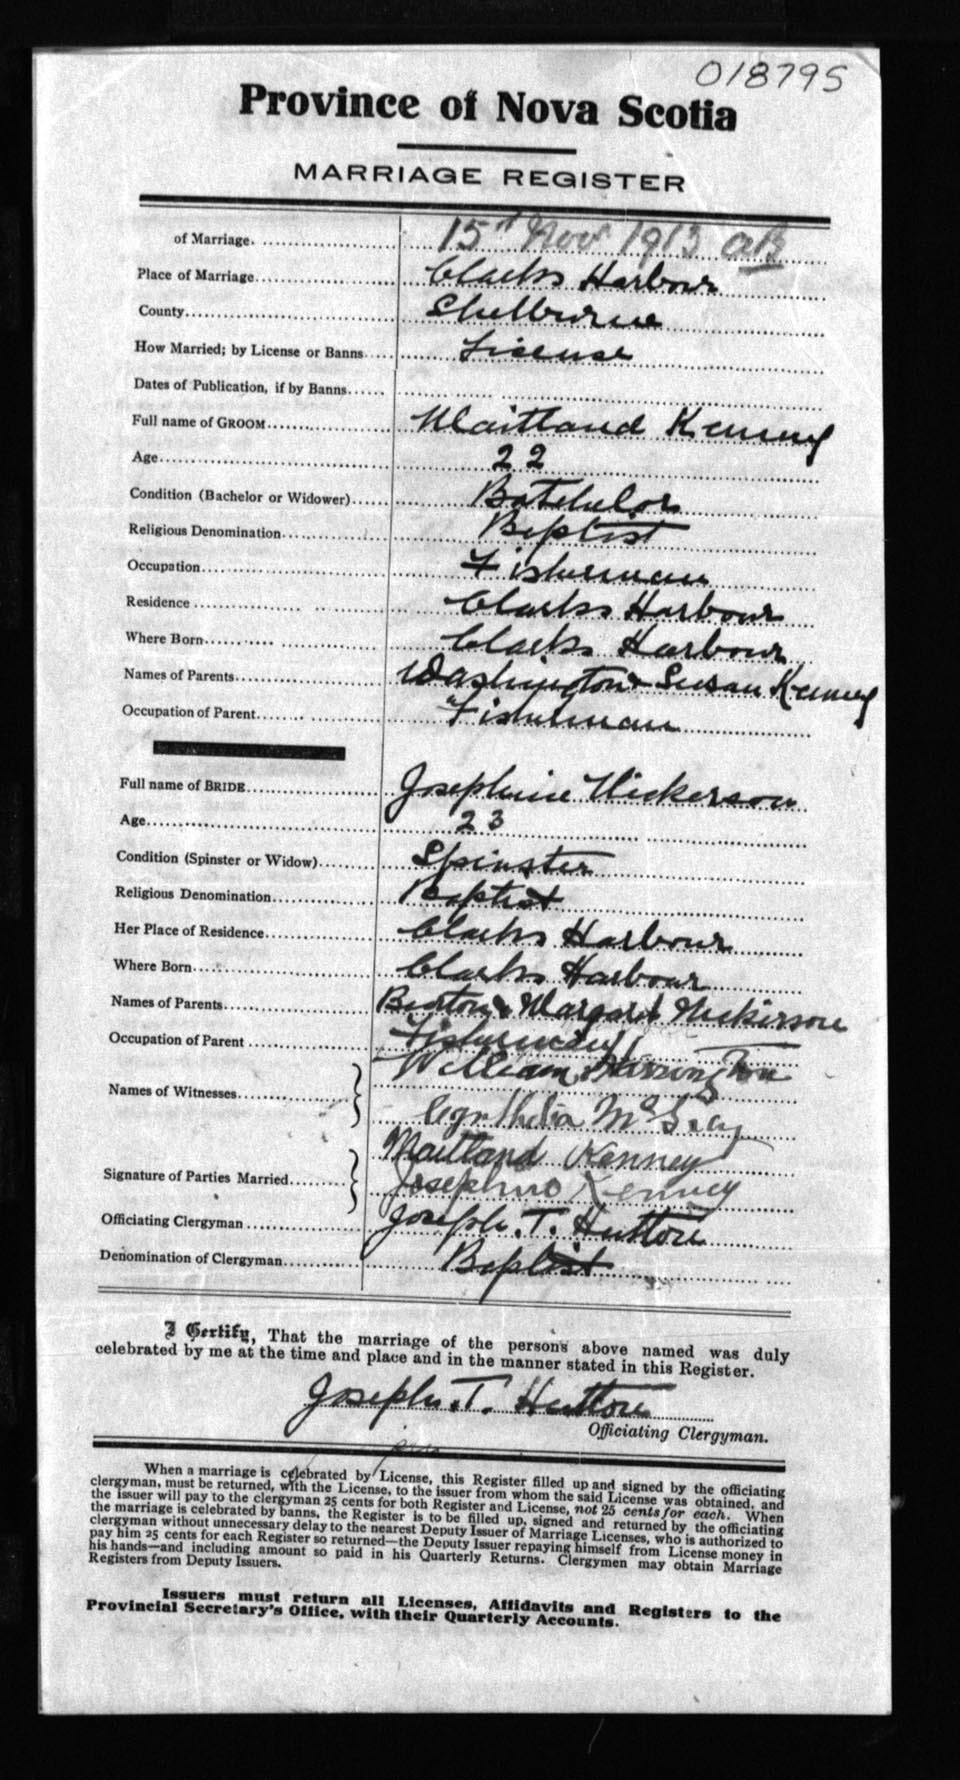 018795
Province of Nova Scotia
MARRIAGE REGISTER
of Marriage. 15th Nov 1913
Place of Marriage Clarks Harbour
County Shelburne
How Married; by License or Banns License
Dates of Publication, if by Banns
Full name of GROOM Maitland Kenney
Age 22
Condition (Bachelor or Widower) Batchelor
Religious Denomination Baptist
Occupation Fisherman
Residence Clarks Harbour
Where Born Clarks Harbour
Names of Parents Washington & Susan Kenney
Occupation of Parent Fisherman
Full name of BRIDE Josephine Nickerson
Age 23
Condition (Spinster or Widow) Spinster
Religious Denomination Baptist
Her Place of Residence Clarks Harbour
Where Born Clarks Harbour
Names of Parents Burton & Margaret Nickerson
Occupation of Parent Fisherman
Names of Witnesses William Harrington
McGray
Signature of Parties Married Maitland Kenney
Josephine Kenney
Officiating Clergyman Joseph. T. Hutton
Denomination of Clergyman Baptist
I Certify, That the marriage of the persons above named was duly
celebrated by me at the time and place and in the manner stated in this Register.
Joseph. T. Hutton
Officiating Clergyman.
When a marriage is celebrated by License, this Register filled up and signed by the officiating
clergyman, must be returned, with the License, to the issuer from whom the said License was obtained, and
the issuer will pay to the clergyman 25 cents for both Register and License, not 25 cents for each. When
the marriage is celebrated by banns, the Register is to be filled up, signed and returned by the officiating
clergyman without unnecessary delay to the nearest Deputy Issuer of Marriage Licenses, who is authorized to
pay him 25 cents for each Register so returned—the Deputy Issuer repaying himself from License money in
his hands—and including amount so paid in his Quarterly Returns. Clergymen may obtain Marriage
Registers from Deputy Issuers.
Issuers must return all Licenses, Affidavits and Registers to the
Provincial Secretary's Office, with their Quarterly Accounts.